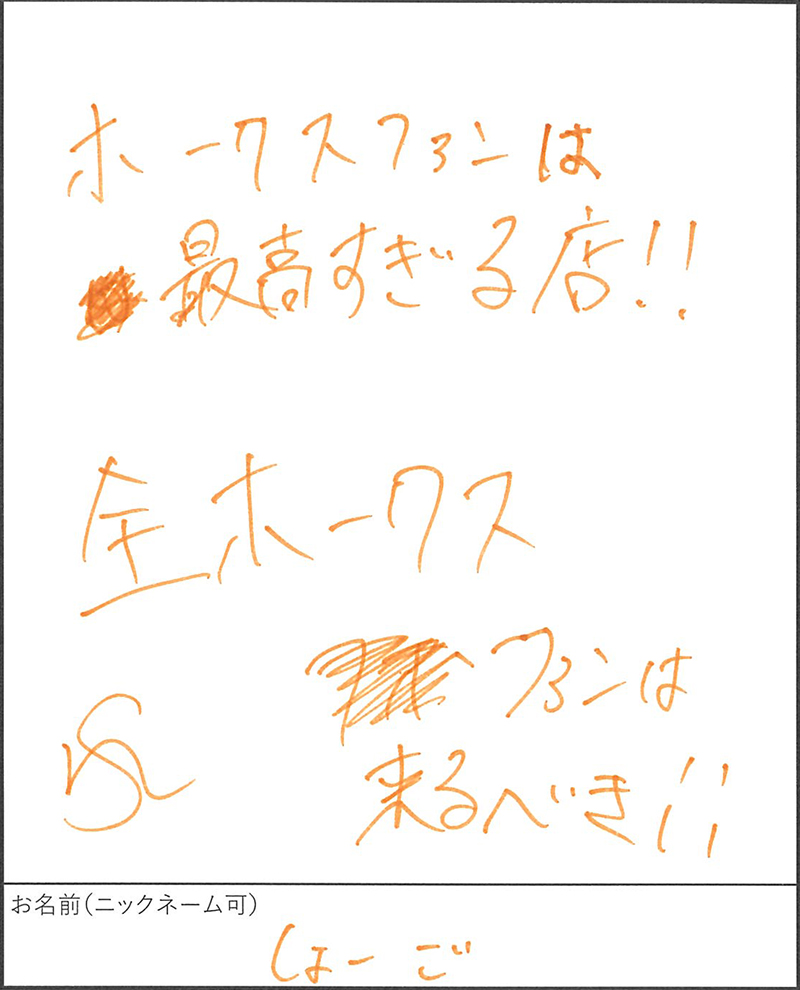 ホークスファンは
最高すぎる店!!
全ホークス
ファンは
来るべき!!
お名前(ニックネーム可)
しょーご